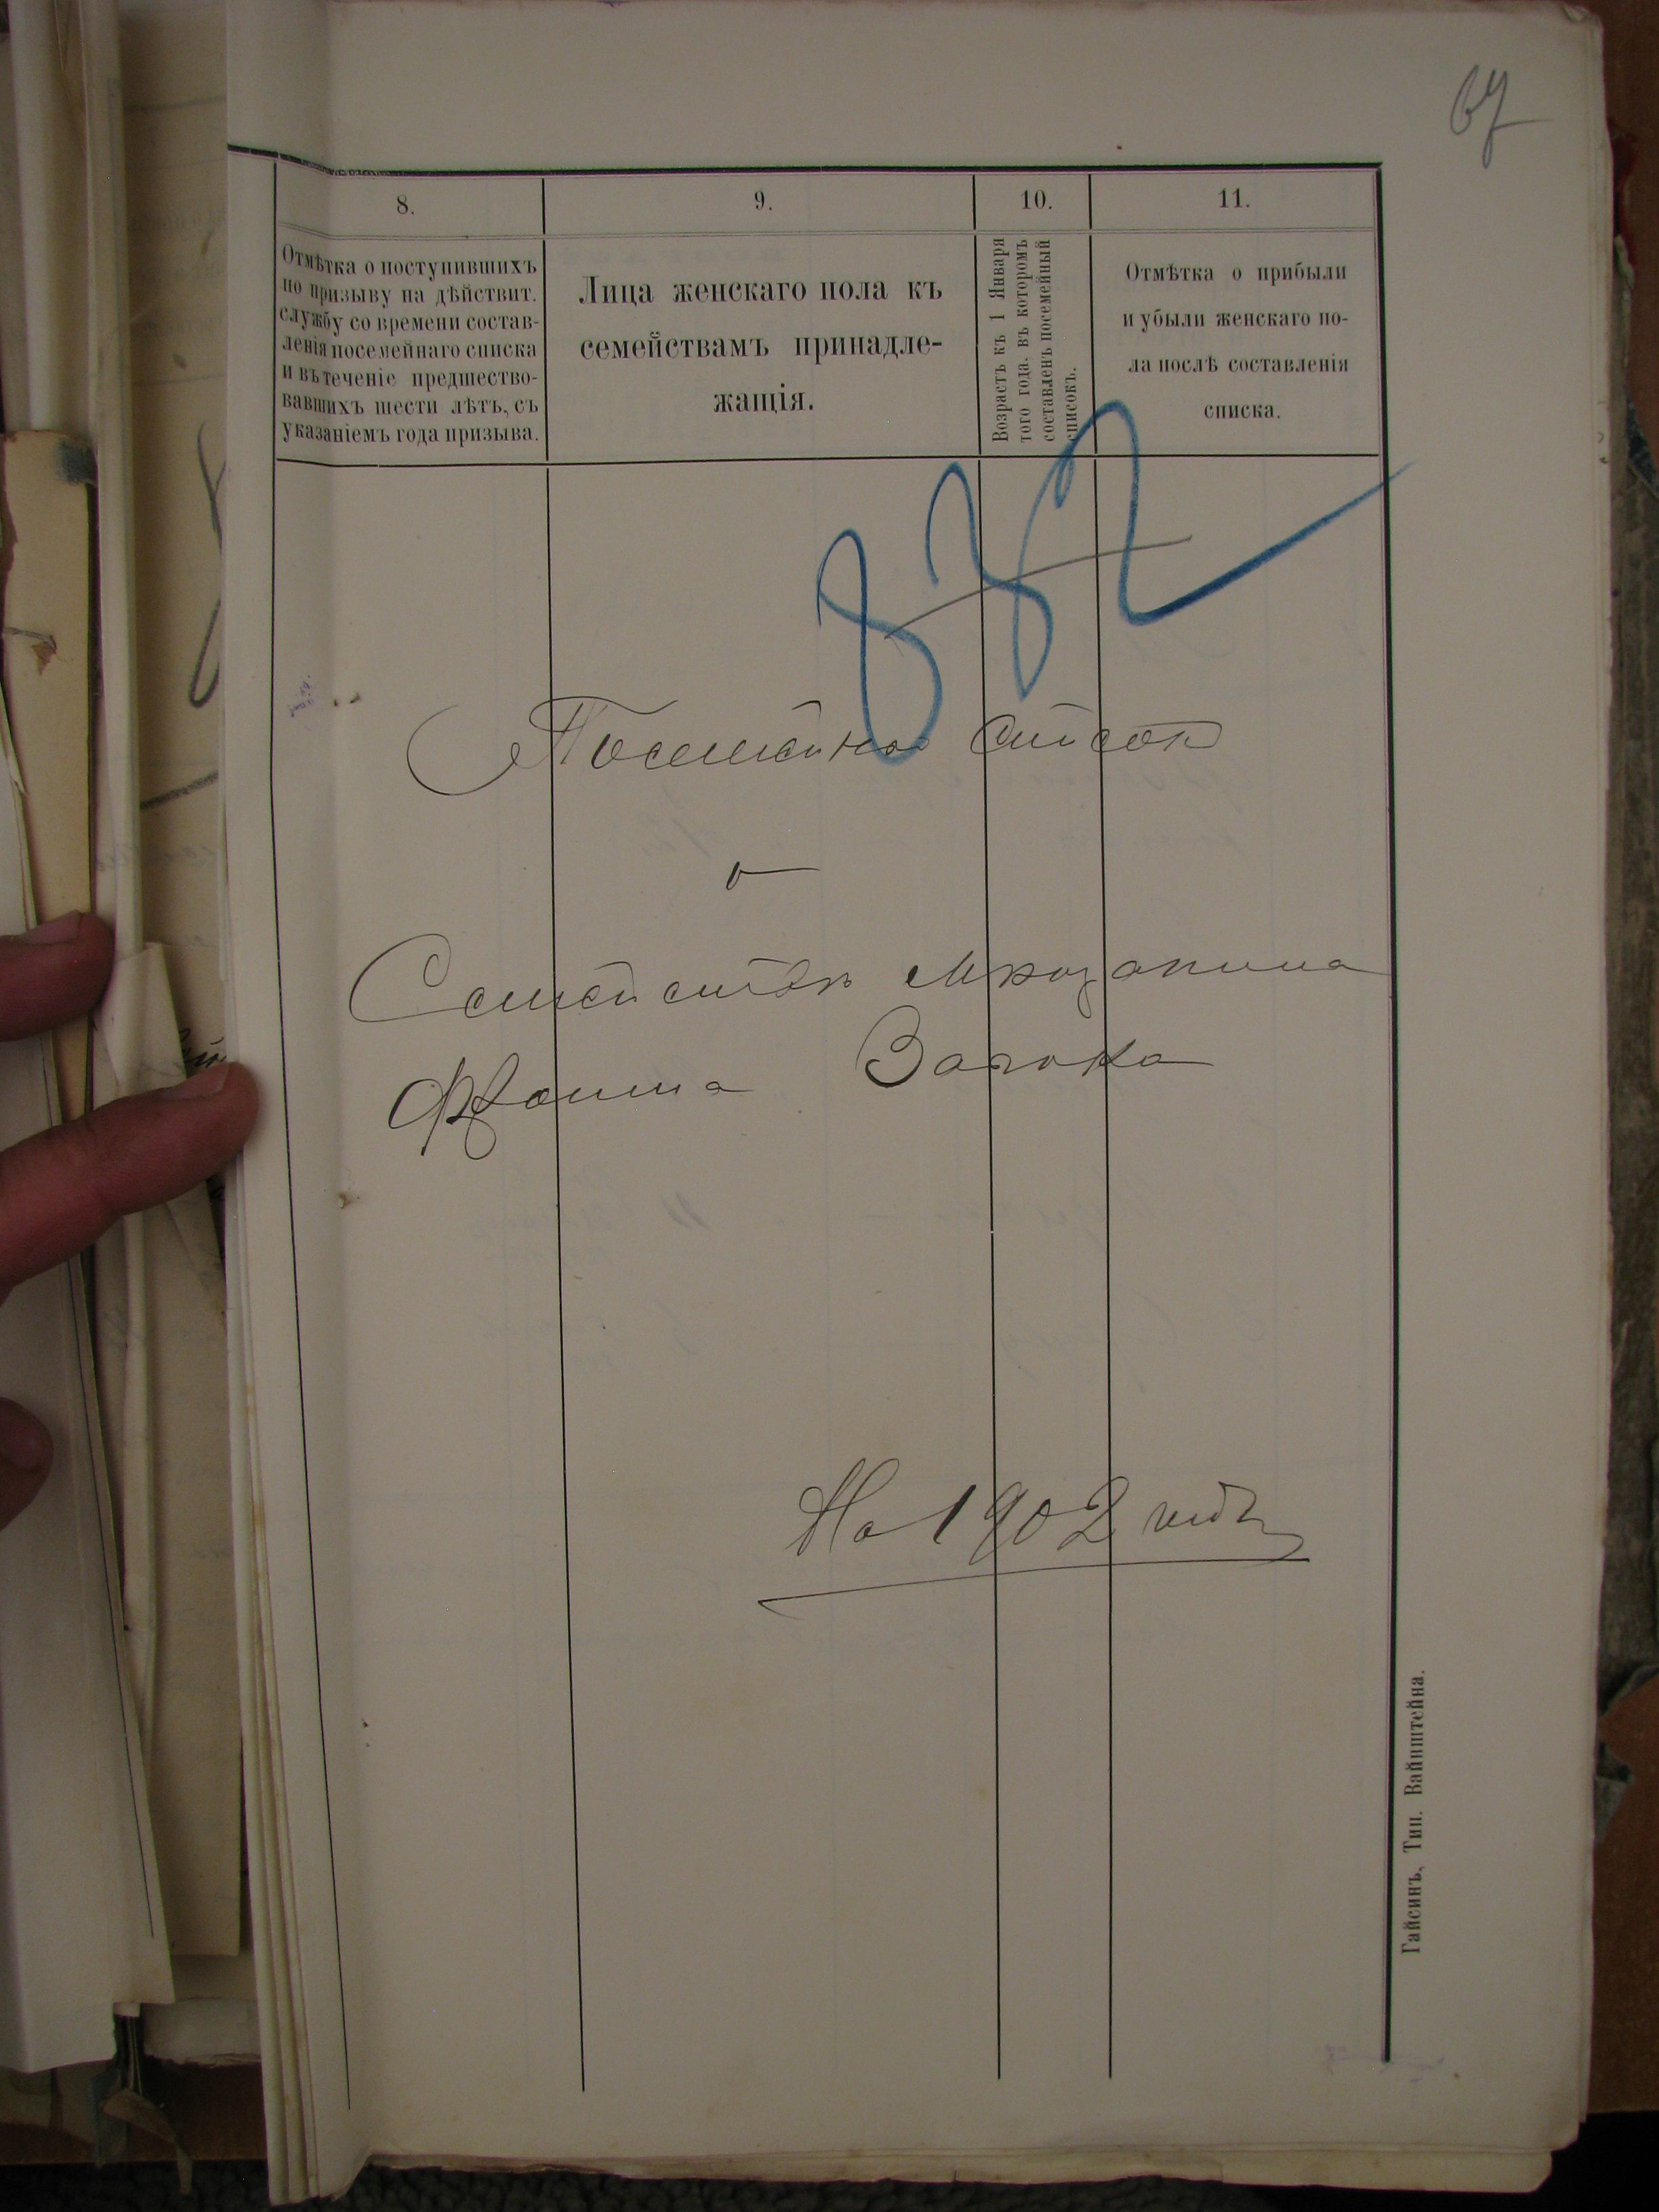 67
8.
9.
10.
11.
Отмѣтка о поступившихъ
по призыву на дѣйствит.
службу со времени состав-
ленія посемейнаго списка
и въ теченіе предшество-
вавшихъ шести лѣтъ, съ
указаніемъ года призыва.
Лица женскаго пола къ
семействамъ принадле-
жащія.
Возрастъ къ 1 Января
того года, въ которомъ
составленъ посемейный
списокъ.
Отмѣтка о прибыли
и убыли женскаго по-
ла послѣ составленія
списка.
882
Посемейной список
о
Семействѣ
На 1902 годъ
Гайсинъ, Тип. Вайнштейна.